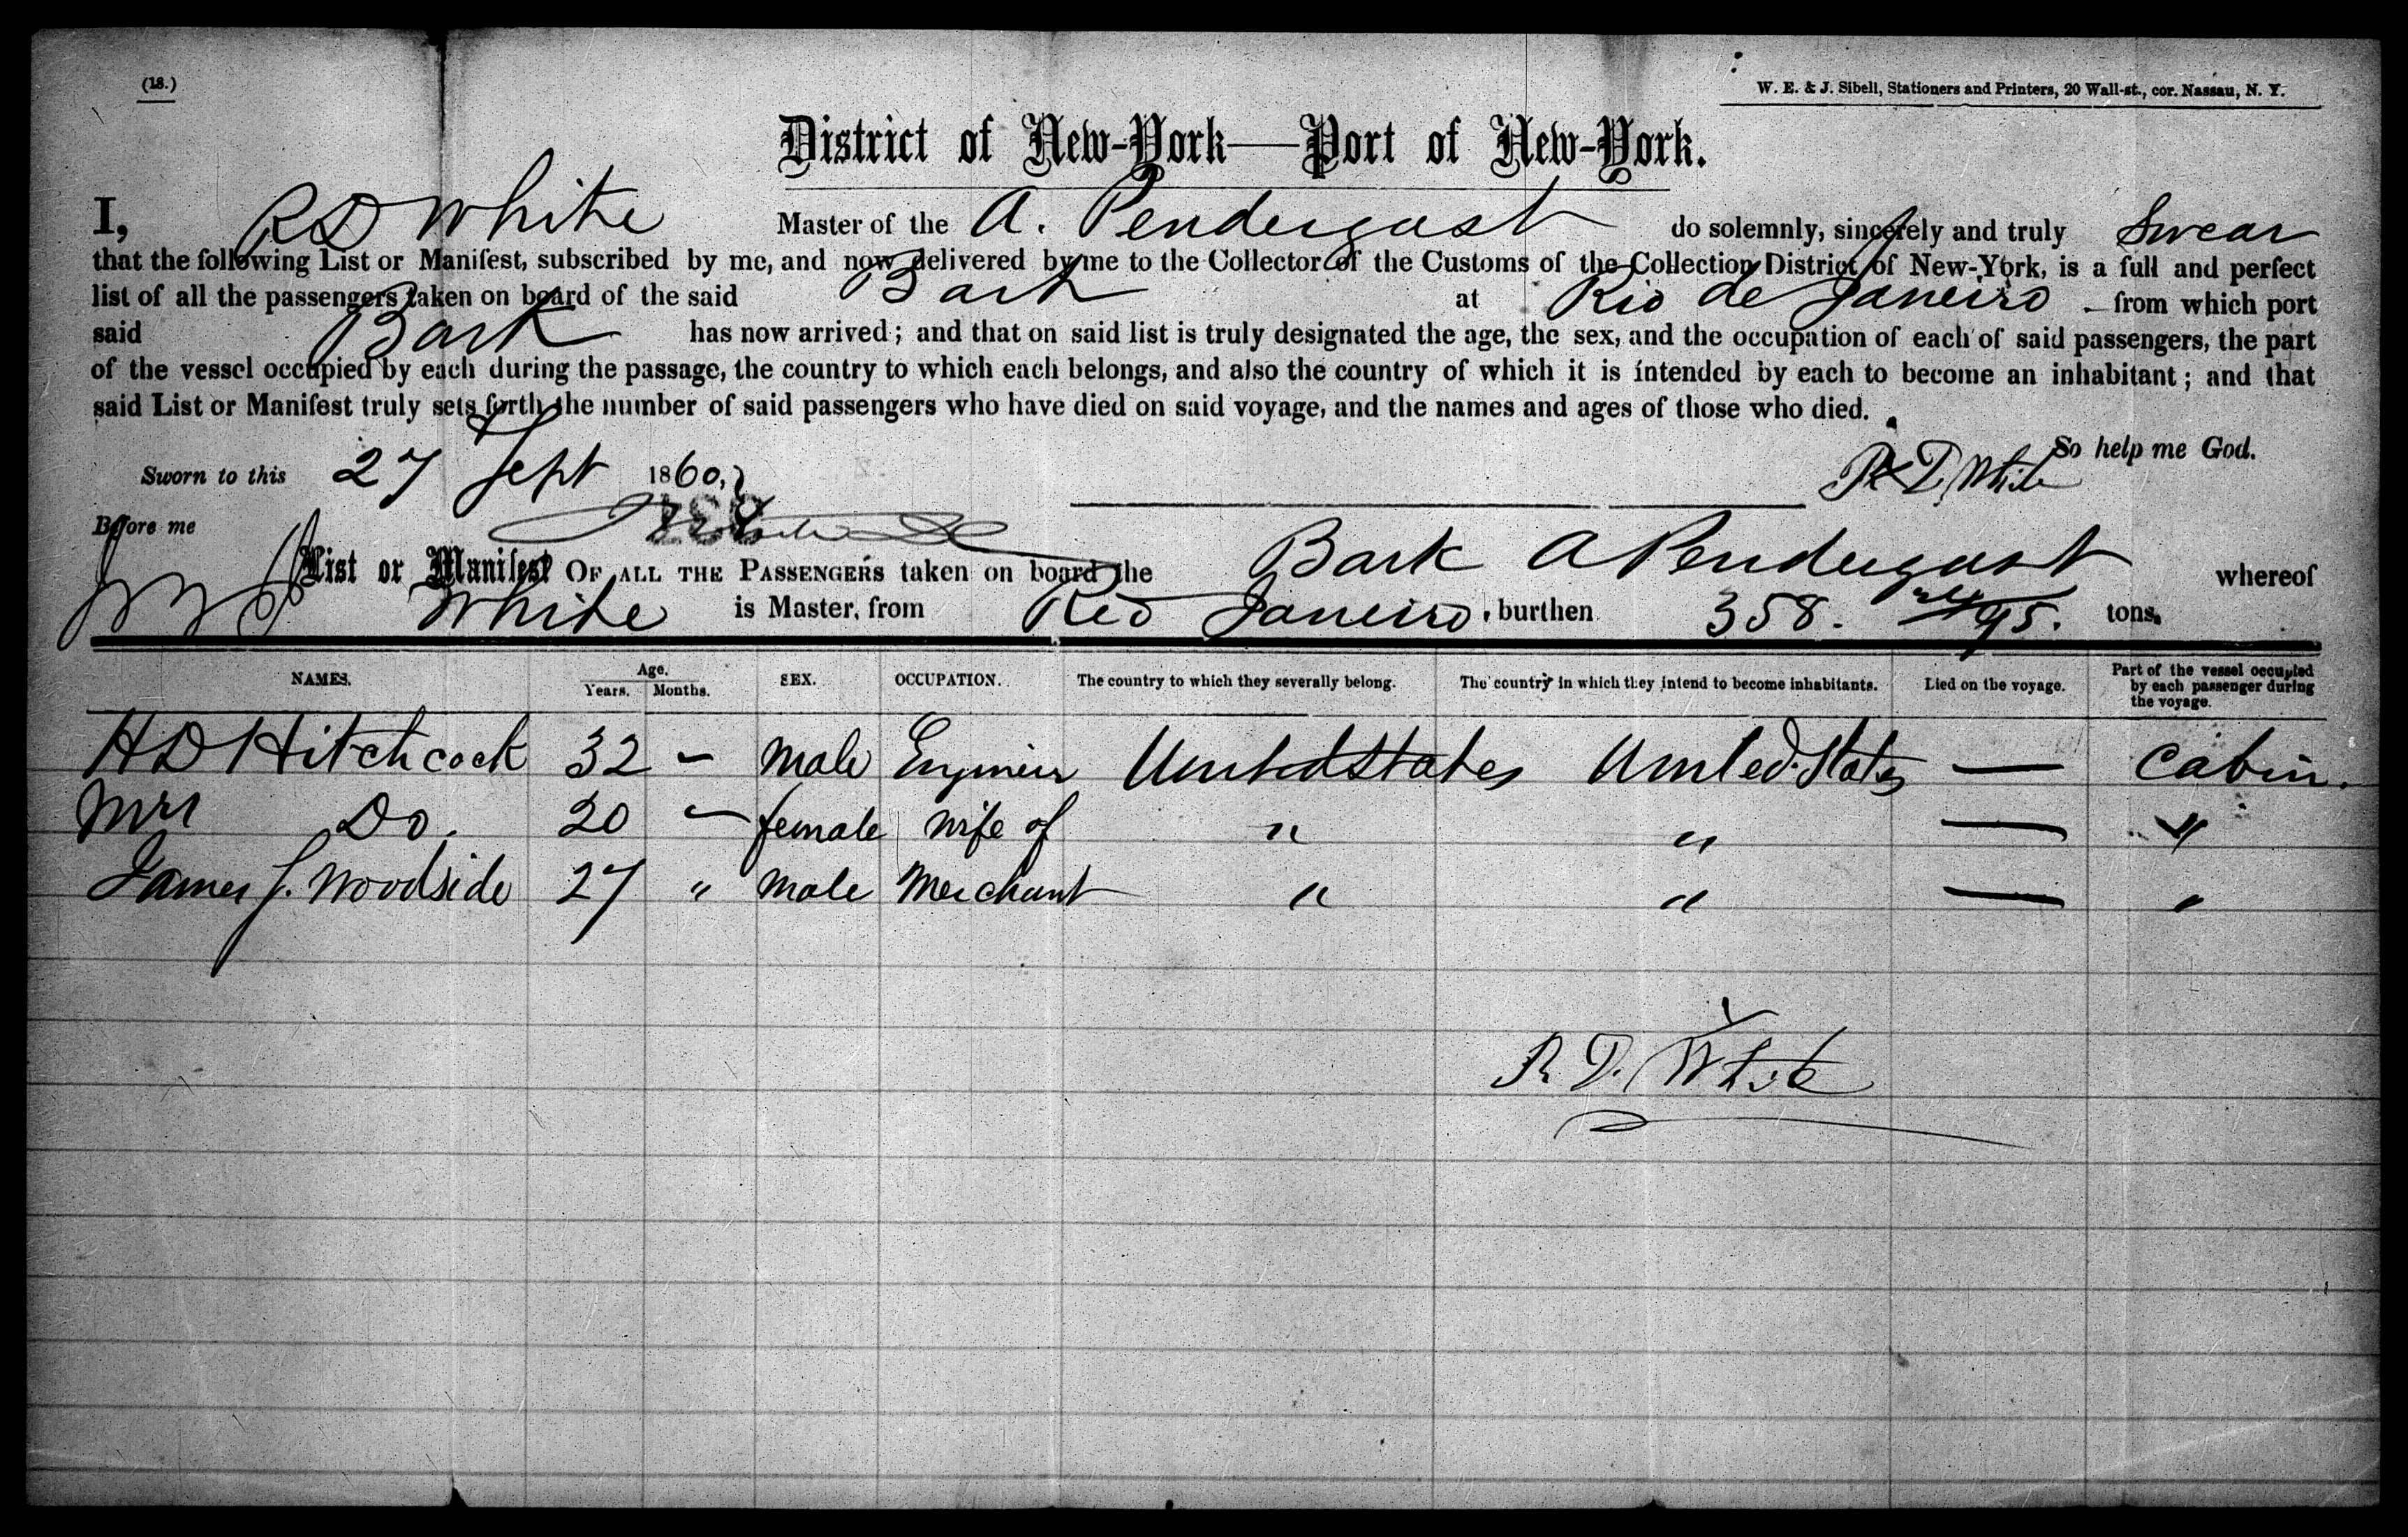 (18.)
W. E. & J. Sibell, Stationers and Printers, 20 Wall-st., cor. Nassau, N. Y.
District of New-York—Port of New-York.
I, R D White Master of the A. Pendergast do solemnly, sincerely and truly Swear
that the following List or Manifest, subscribed by me, and now delivered by me to the Collector of the Customs of the Collection District of New-York, is a full and perfect
list of all the passengers taken on board of the said Bark at Rio de Janeiro from which port
said Bark has now arrived; and that on said list is truly designated the age, the sex, and the occupation of each of said passengers, the part
of the vessel occupied by each during the passage, the country to which each belongs, and also the country of which it is intended by each to become an inhabitant; and that
said List or Manifest truly sets forth the number of said passengers who have died on said voyage, and the names and ages of those who died.
So help me God.
Sworn to this 27 Sept 1860, R D White
Before me
List or Manifest OF ALL THE PASSENGERS taken on board the Bark A Pendergast whereof
White is Master, from Rio Janeiro, burthen 358. 95. tons.
NAMES. Age. Years. Months. SEX. OCCUPATION. The country to which they severally belong. The country in which they intend to become inhabitants. Died on the voyage. Part of the vessel occupied by each passenger during the voyage.
H D Hitchcock 32 – male Engineer United States United States — Cabin.
Mrs Do. 20 – female wife of " " — "
James J. Woodside 27 " male Merchant " " — "
R. D. White